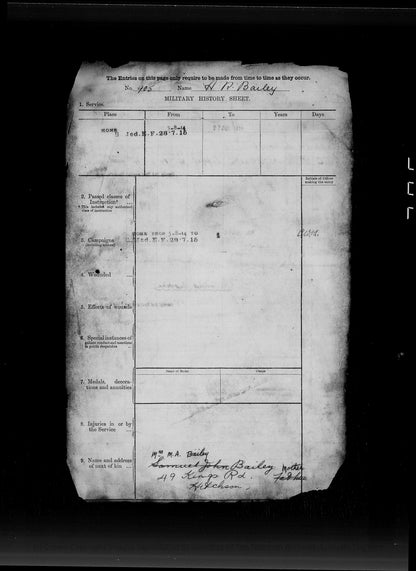 The Entries on this page only require to be made from time to time as they occur.
No. 905 Name H R Bailey
MILITARY HISTORY SHEET.
1. Service.
Place From To Years Days
HOME 5-8-14
Med.E.F. 28.7.15
Initials of Officer making the entry
2. Passed classes of Instruction*
* This includes any authorised class of instruction
HOME FROM 5-8-14 TO
3. Campaigns
Med.E.F. 28.7.15
4. Wounded
5. Effects of wounds
6. Special instances of gallant conduct and mentions in public despatches
7. Medals, decorations and annuities
8. Injuries in or by the Service
Mrs M.A. Bailey
9. Name and address of next of kin
Samuel John Bailey Mother
49 Kings Rd. Father
Hitchin